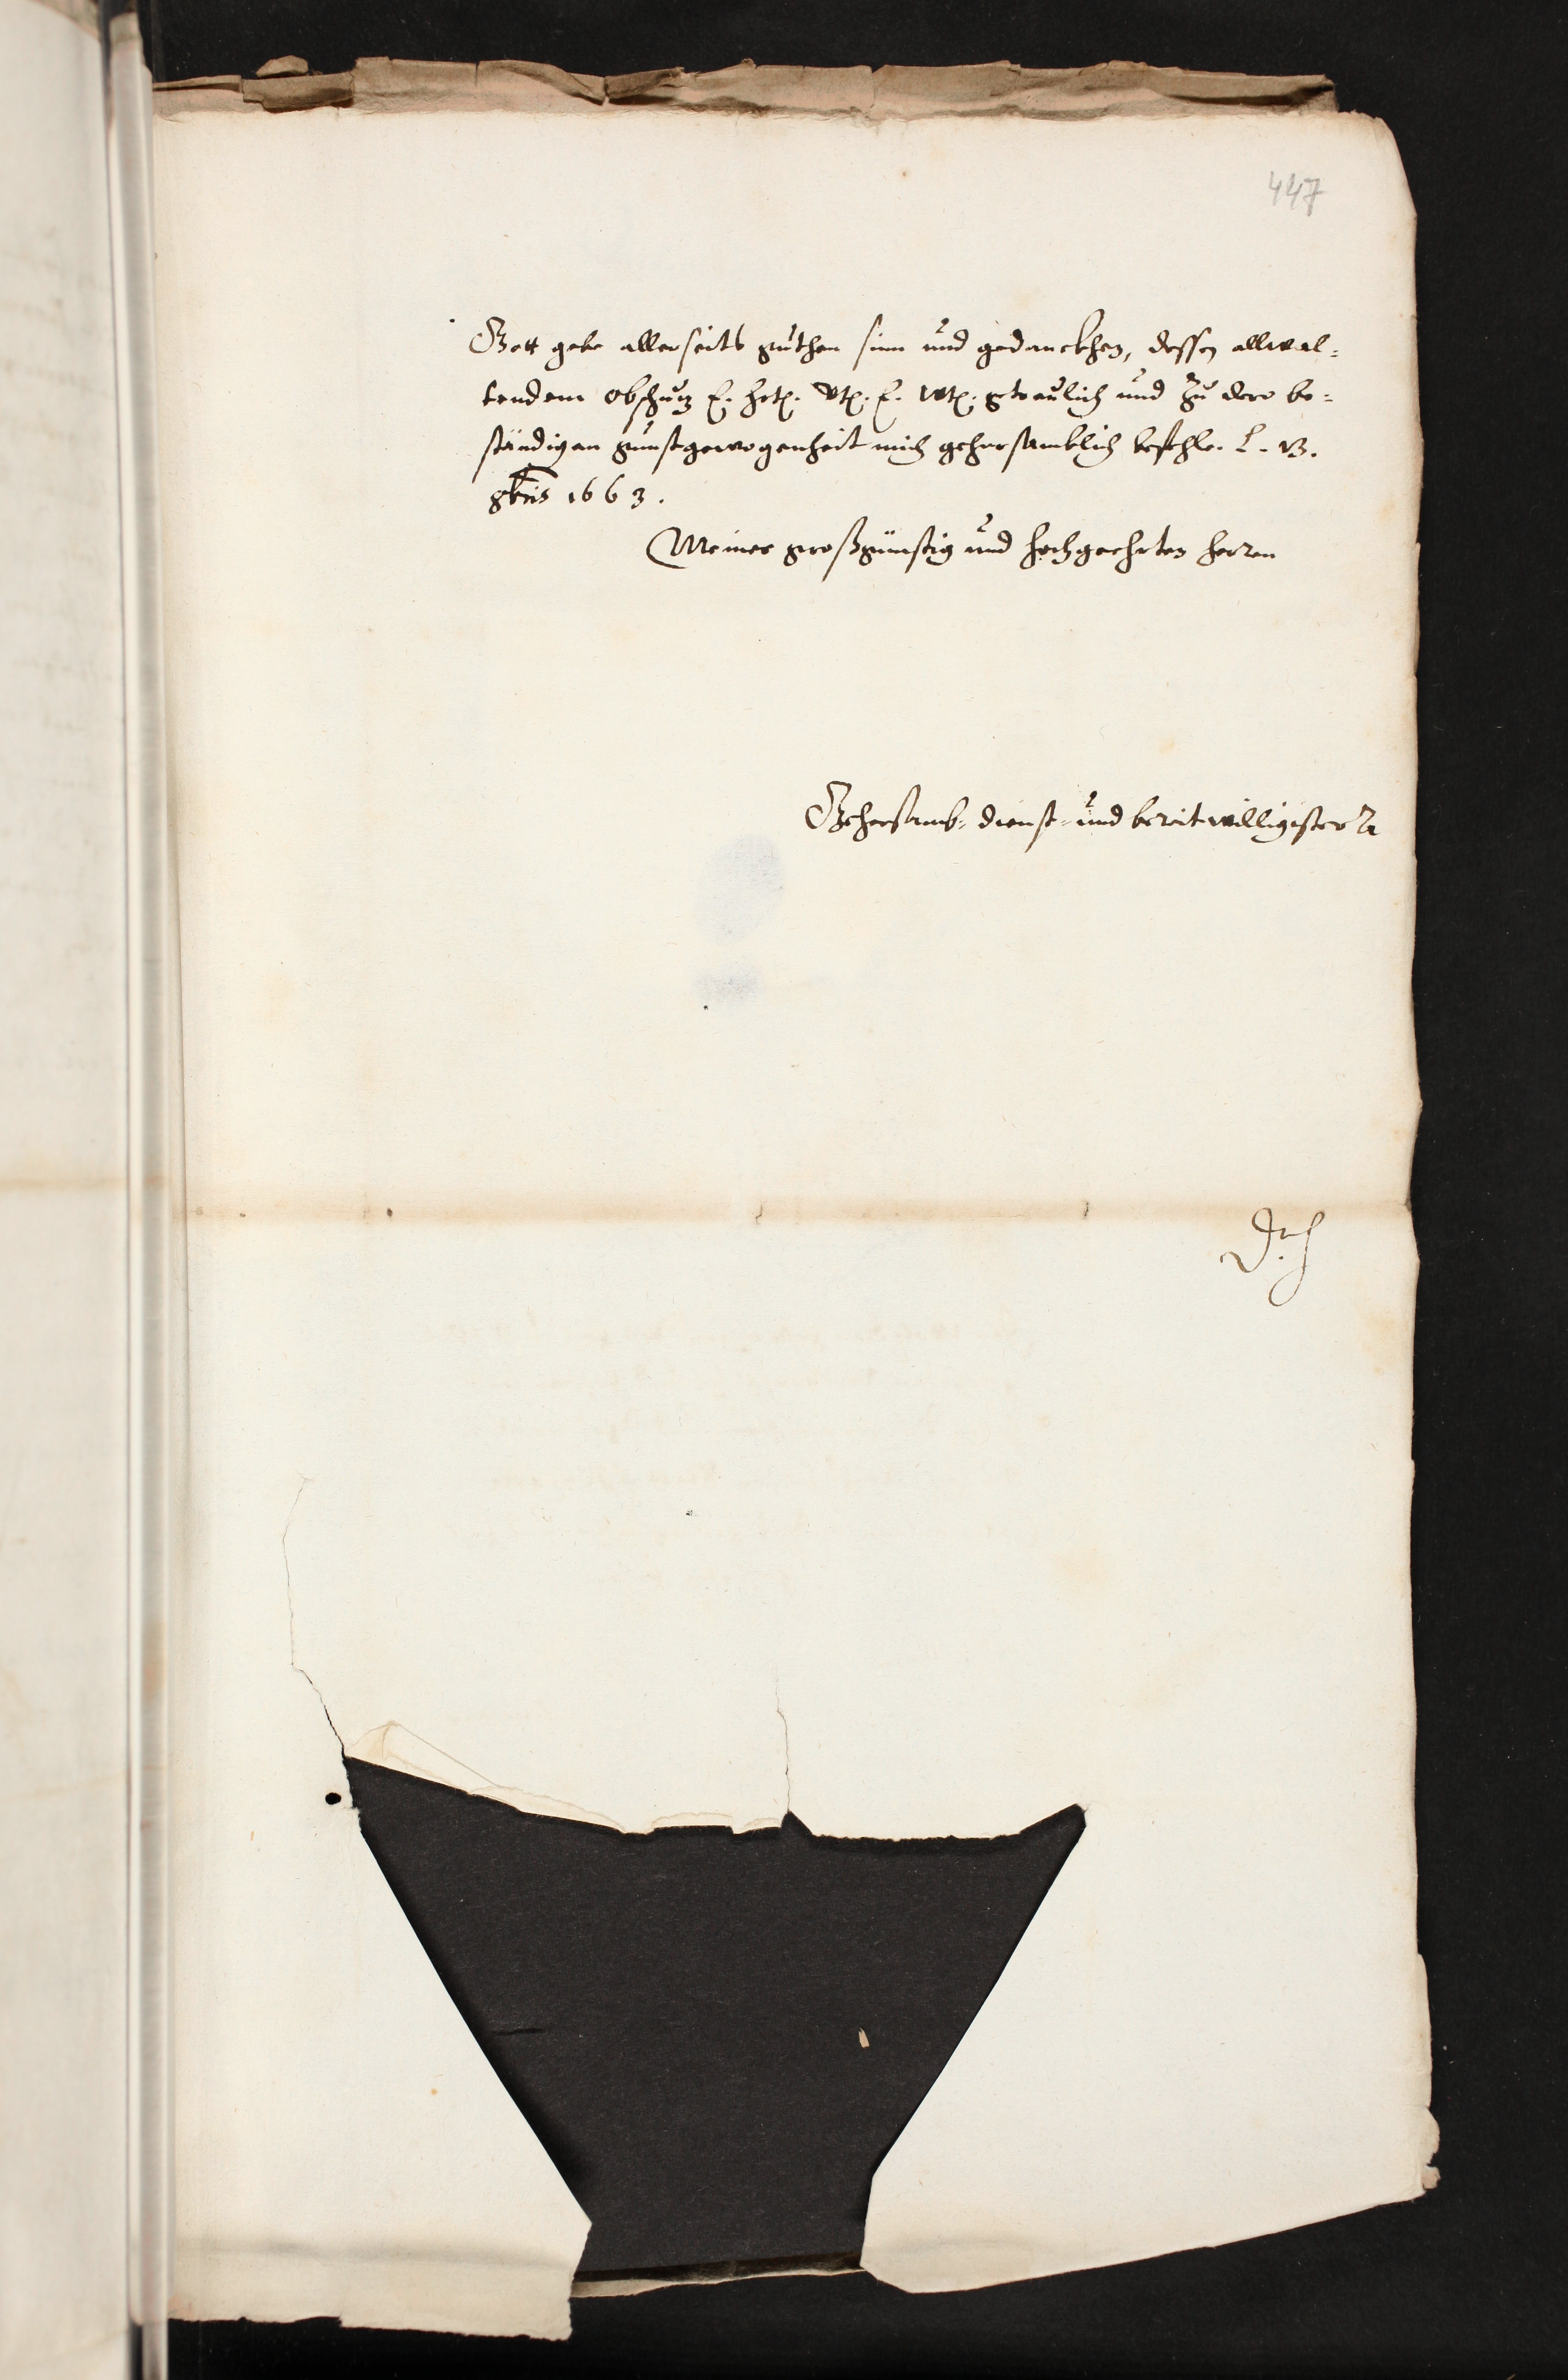 447
Gott gebe allerseits guthen sinn und gedanckhen, dessen allwal=
tendem obschutz E. hrt. Vt. E. Wt. getreulich und zu dero be=
ständigen gunstgewogenheit mich gehorsamblich befehle. L. 13.
9bris 1663.
Meines großgünstig und hochgeehrten herren
Gehorsamb- dienst- und bereitwilligister